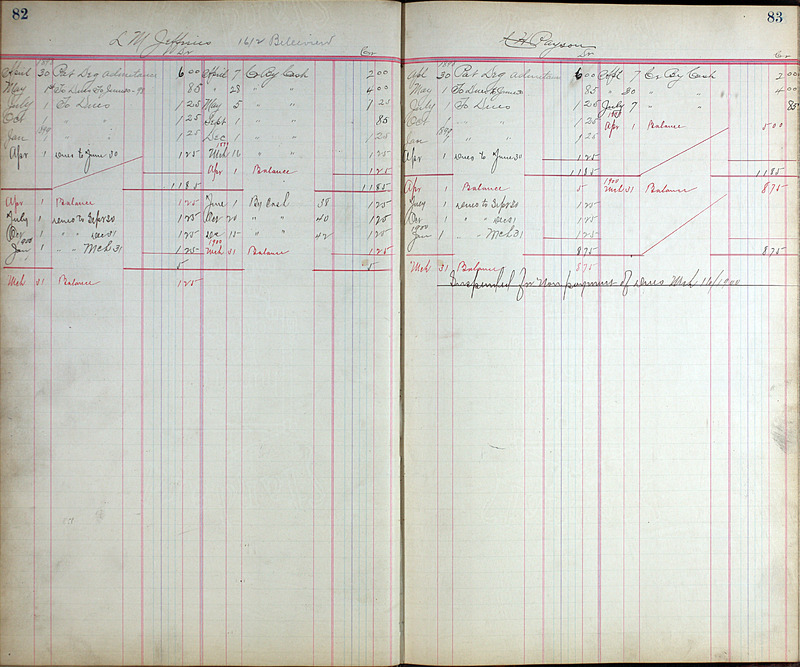 82
L M Jeffries 1612 Belleview
Dr Cr
1898
April 30 Pat Deg Admittance 6 00 April 7 Cr By Cash 2 00
May 1st To Dues To June 30-98 85 " 28 " " 4 00
July 1 To Dues 1 25 May 5 " " 1 25
Oct 1 " " 1 25 Sept 1 " " 85
1899
Jan " " 1 25 Dec 1 " " 1 25
1899
Apr 1 Dues to June 30 1 25 Mch 16 " " 1 25
Apr 1 Balance 1 25
11 85 11 85
Apr 1 Balance 1 25 June 1 By Cash 38 1 25
July 1 Dues to Sept 30 1 25 Oct 20 " " 40 1 25
Oct 1 " " Dec 31 1 25 Dec 15 " " 42 1 25
1900 1900
Jan 1 " " Mch 31 1 25 Mch 31 Balance 1 25
5 5
Mch 31 Balance 1 25
83
Payson
Dr Cr
1898
Apl 30 Pat Deg Admittance 6 00 Apl 7 Cr By Cash 2 00
May 1 To Dues to June 30 85 " 30 " " 4 00
July 1 To Dues 1 25 July 7 " " 85
Oct 1 " " 1 25 Apr 1 Balance 5 00
1899
Jan " " 1 25
Apr 1 Dues to June 30 1 25
11 85 11 85
1900
Apr 1 Balance 5 Mch 31 Balance 8 75
July 1 Dues to Sept 30 1 25
Oct 1 " " Dec 31 1 25
1900
Jan 1 " " Mch 31 1 25
8 75 8 75
Mch 31 Balance 8 75
Suspended for Non payment of dues Mch 16/1900